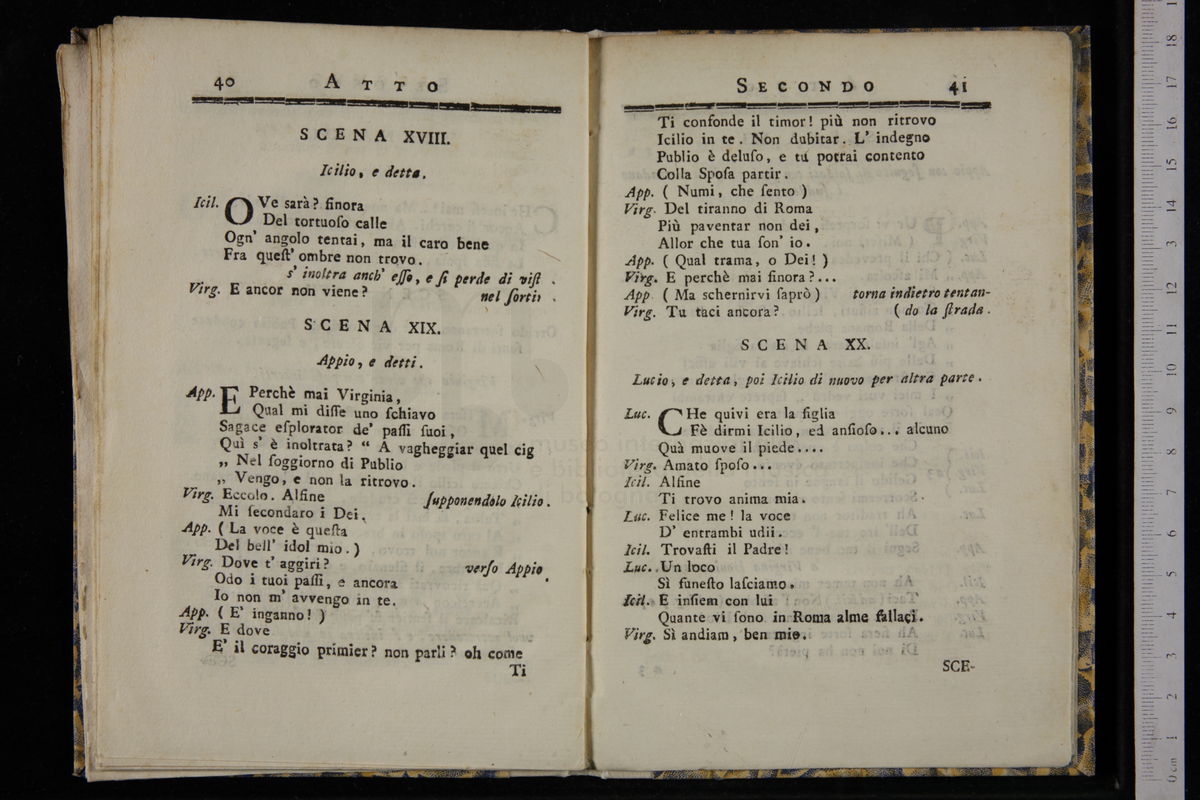 40 ATTO
SCENA XVIII.
Icilio, e detta.
Icil. OVe sarà? finora
Del tortuoſo calle
Ogn' angolo tentai, ma il caro bene
Fra queſt' ombre non trovo.
s' inoltra anch' eſſo, e ſi perde di viſt .
Virg. E ancor non viene? nel ſortir .
SCENA XIX.
Appio, e detti.
App. E Perchè mai Virginia,
Qual mi diſſe uno ſchiavo
Sagace eſplorator de' paſſi ſuoi,
Quì s' è inoltrata? “ A vagheggiar quel cig
„ Nel ſoggiorno di Publio
„ Vengo, e non la ritrovo.
Virg. Eccolo. Alfine ſupponendolo Icilio.
Mi ſecondaro i Dei.
App. ( La voce è queſta
Del bell' idol mio. )
Virg. Dove t' aggiri? verſo Appio
Odo i tuoi paſſi, e ancora
Io non m' avvengo in te.
App. ( E' inganno! )
Virg. E dove
E' il coraggio primier? non parli? oh come
Ti
SECONDO 41
Ti confonde il timor! più non ritrovo
Icilio in te. Non dubitar. L' indegno
Publio è deluſo, e tu potrai contento
Colla Spoſa partir.
App. ( Numi, che ſento )
Virg. Del tiranno di Roma
Più paventar non dei,
Allor che tua ſon' io.
App. ( Qual trama, o Dei! )
Virg. E perchè mai ſinora?...
App ( Ma schernirvi ſaprò ) torna indietro tentan-
Virg. Tu taci ancora? ( do la ſtrada.
SCENA XX.
Lucio, e detta, poi Icilio di nuovo per altra parte.
Luc. CHe quivi era la ſiglia
Fè dirmi Icilio, ed anſioſo... alcuno
Quà muove il piede....
Virg. Amato ſpoſo...
Icil. Alfine
Ti trovo anima mia.
Luc. Felice me! la voce
D' entrambi udii.
Icil. Trovaſti il Padre!
Luc. Un loco
Sì funeſto laſciamo.
Icil. E inſiem con lui
Quante vi ſono in Roma alme fallaci.
Virg. Sì andiam, ben mio.
SCE-